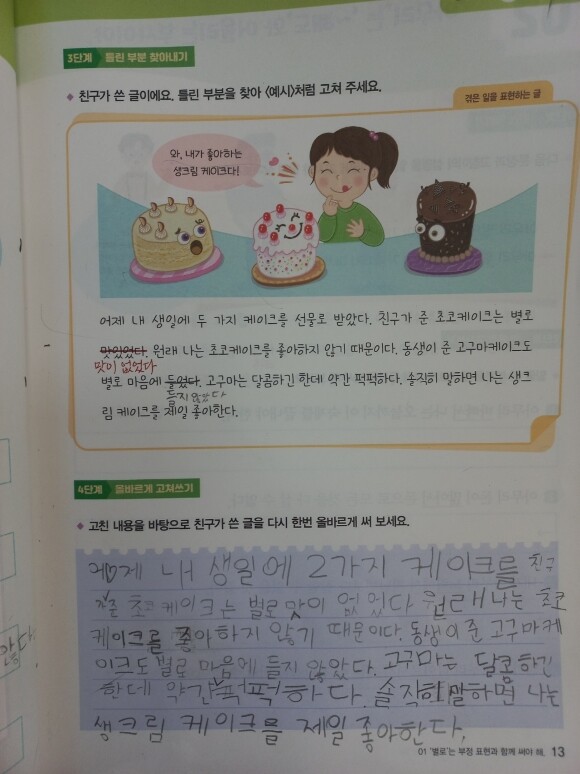 3단계 틀린 부분 찾아내기
◆ 친구가 쓴 글이에요. 틀린 부분을 찾아 <예시>처럼 고쳐 주세요.
겪은 일을 표현하는 글
와, 내가 좋아하는
생크림 케이크다!
어제 내 생일에 두 가지 케이크를 선물로 받았다. 친구가 준 초코케이크는 별로
맛있었다. 원래 나는 초코케이크를 좋아하지 않기 때문이다. 동생이 준 고구마케이크도
맛이 없었다
별로 마음에 들었다. 고구마는 달콤하긴 한데 약간 퍽퍽하다. 솔직히 말하면 나는 생크
들지 않았다
림 케이크를 제일 좋아한다.
4단계 올바르게 고쳐쓰기
◆ 고친 내용을 바탕으로 친구가 쓴 글을 다시 한번 올바르게 써 보세요.
제 내 생일에 2가지 케이크를 친구
초코 케이크는 별로 맛이 없었다 원래 나는 초코
케이크를 좋아하지 않기 때문이다. 동생이 준 고구마케
이크도 별로 마음에 들지 않았다. 고구마는 달콤하긴
한데 약간 퍽퍽하다. 솔직히 말하면 나는
생크림 케이크를 제일 좋아한다.
01 '별로'는 부정 표현과 함께 써야 해. 13